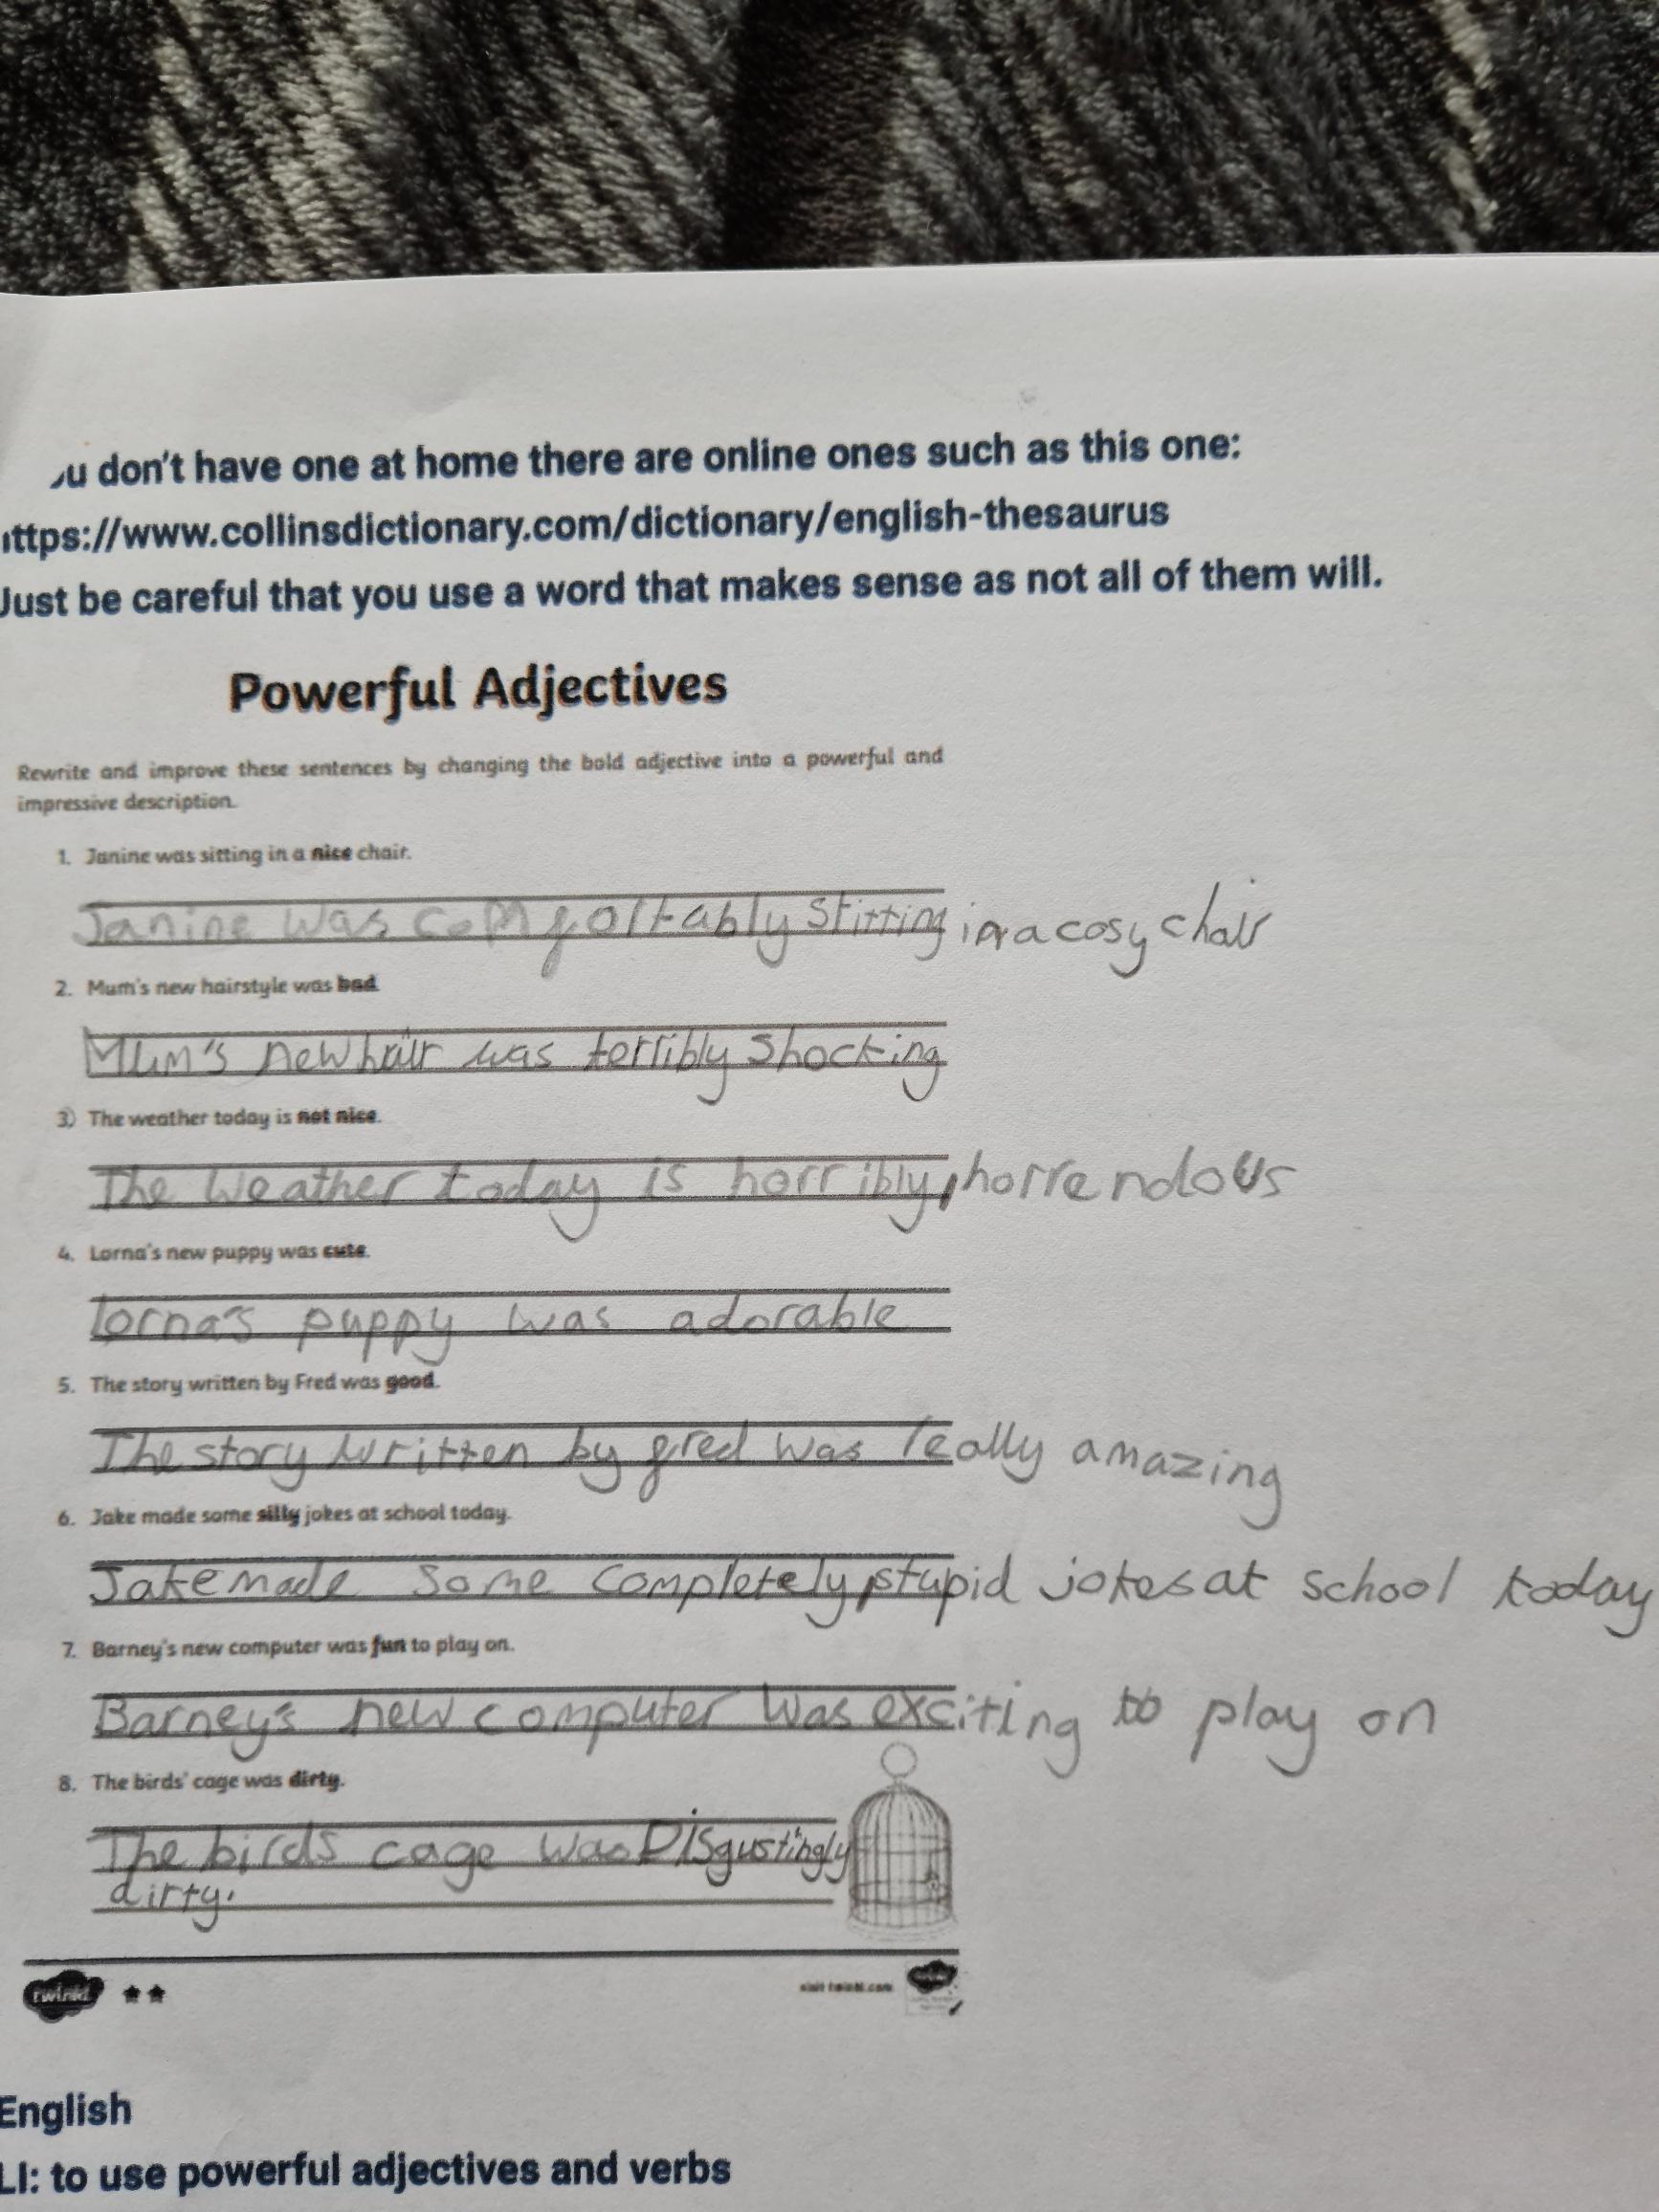 u don't have one at home there are online ones such as this one:
ttps://www.collinsdictionary.com/dictionary/english-thesaurus
Just be careful that you use a word that makes sense as not all of them will.
Powerful Adjectives
Rewrite and improve these sentences by changing the bold adjective into a powerful and
impressive description.
1. Janine was sitting in a nice chair.
Janine was comfortably stitting in a cosy chair
2. Mum's new hairstyle was bad.
Mum's new hair was terribly shocking
3) The weather today is not nice.
The weather today is horribly, horrendous
4. Lorna's new puppy was cute.
Lorna's puppy was adorable
5. The story written by Fred was good.
The story written by fred was really amazing
6. Jake made some silly jokes at school today.
Jake made some completely, stupid jokes at school today
7. Barney's new computer was fun to play on.
Barney's new computer was exciting to play on
8. The birds' cage was dirty.
The birds cage was Disgustingly
dirty.
twinkl
visit twinkl.com
English
LI: to use powerful adjectives and verbs